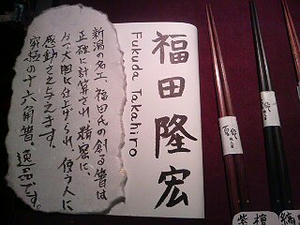 福田隆宏
Fukuda Takahiro
新潟の名工、福田氏の創る箸は
正確に計算され、精密に、
かつ大胆に仕上げられ、使う人に
感動を与えます。
究極の十六角箸、逸品です。
紫檀
縞